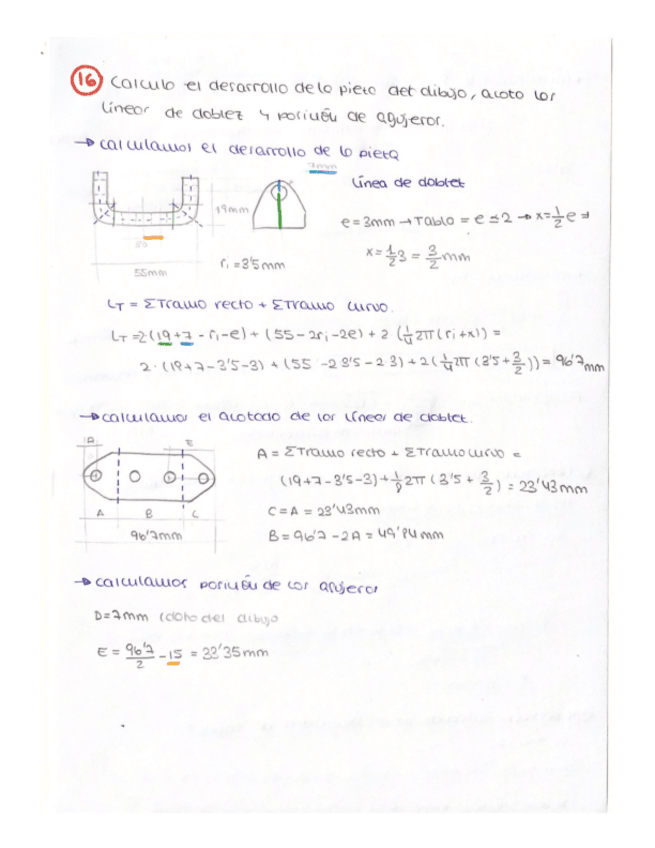 16 Calculo el desarrollo de la pieza del dibujo, acoto los
líneas de doblez y posición de agujeros.
→ calculamos el desarrollo de la pieza
7mm
Línea de doblez
19mm
e = 3mm → Tabla = e ≤ 2 → x = 1/2 e =
x = 1/2 3 = 3/2 mm
ri = 3'5mm
55mm
LT = ΣTramo recto + ΣTramo curvo.
LT = 2(19+7 - ri - e) + (55 - 2ri - 2e) + 2 (1/4 2π (ri + x)) =
2·(19+7-3'5-3) + (55 -2 3'5 -2 3) + 2(1/4 2π (3'5 + 3/2)) = 96'7mm
→ calculamos el acotado de los líneas de doblez.
A E
A = ΣTramo recto + ΣTramo curvo =
(19+7-3'5-3) + 1/8 2π (3'5 + 3/2) = 23'43mm
A B C
C = A = 23'43mm
96'7mm
B = 96'7 - 2A = 49'84mm
→ calculamos posición de los agujeros
D = 7mm (dato del dibujo
E = 96'7/2 - 15 = 33'35mm